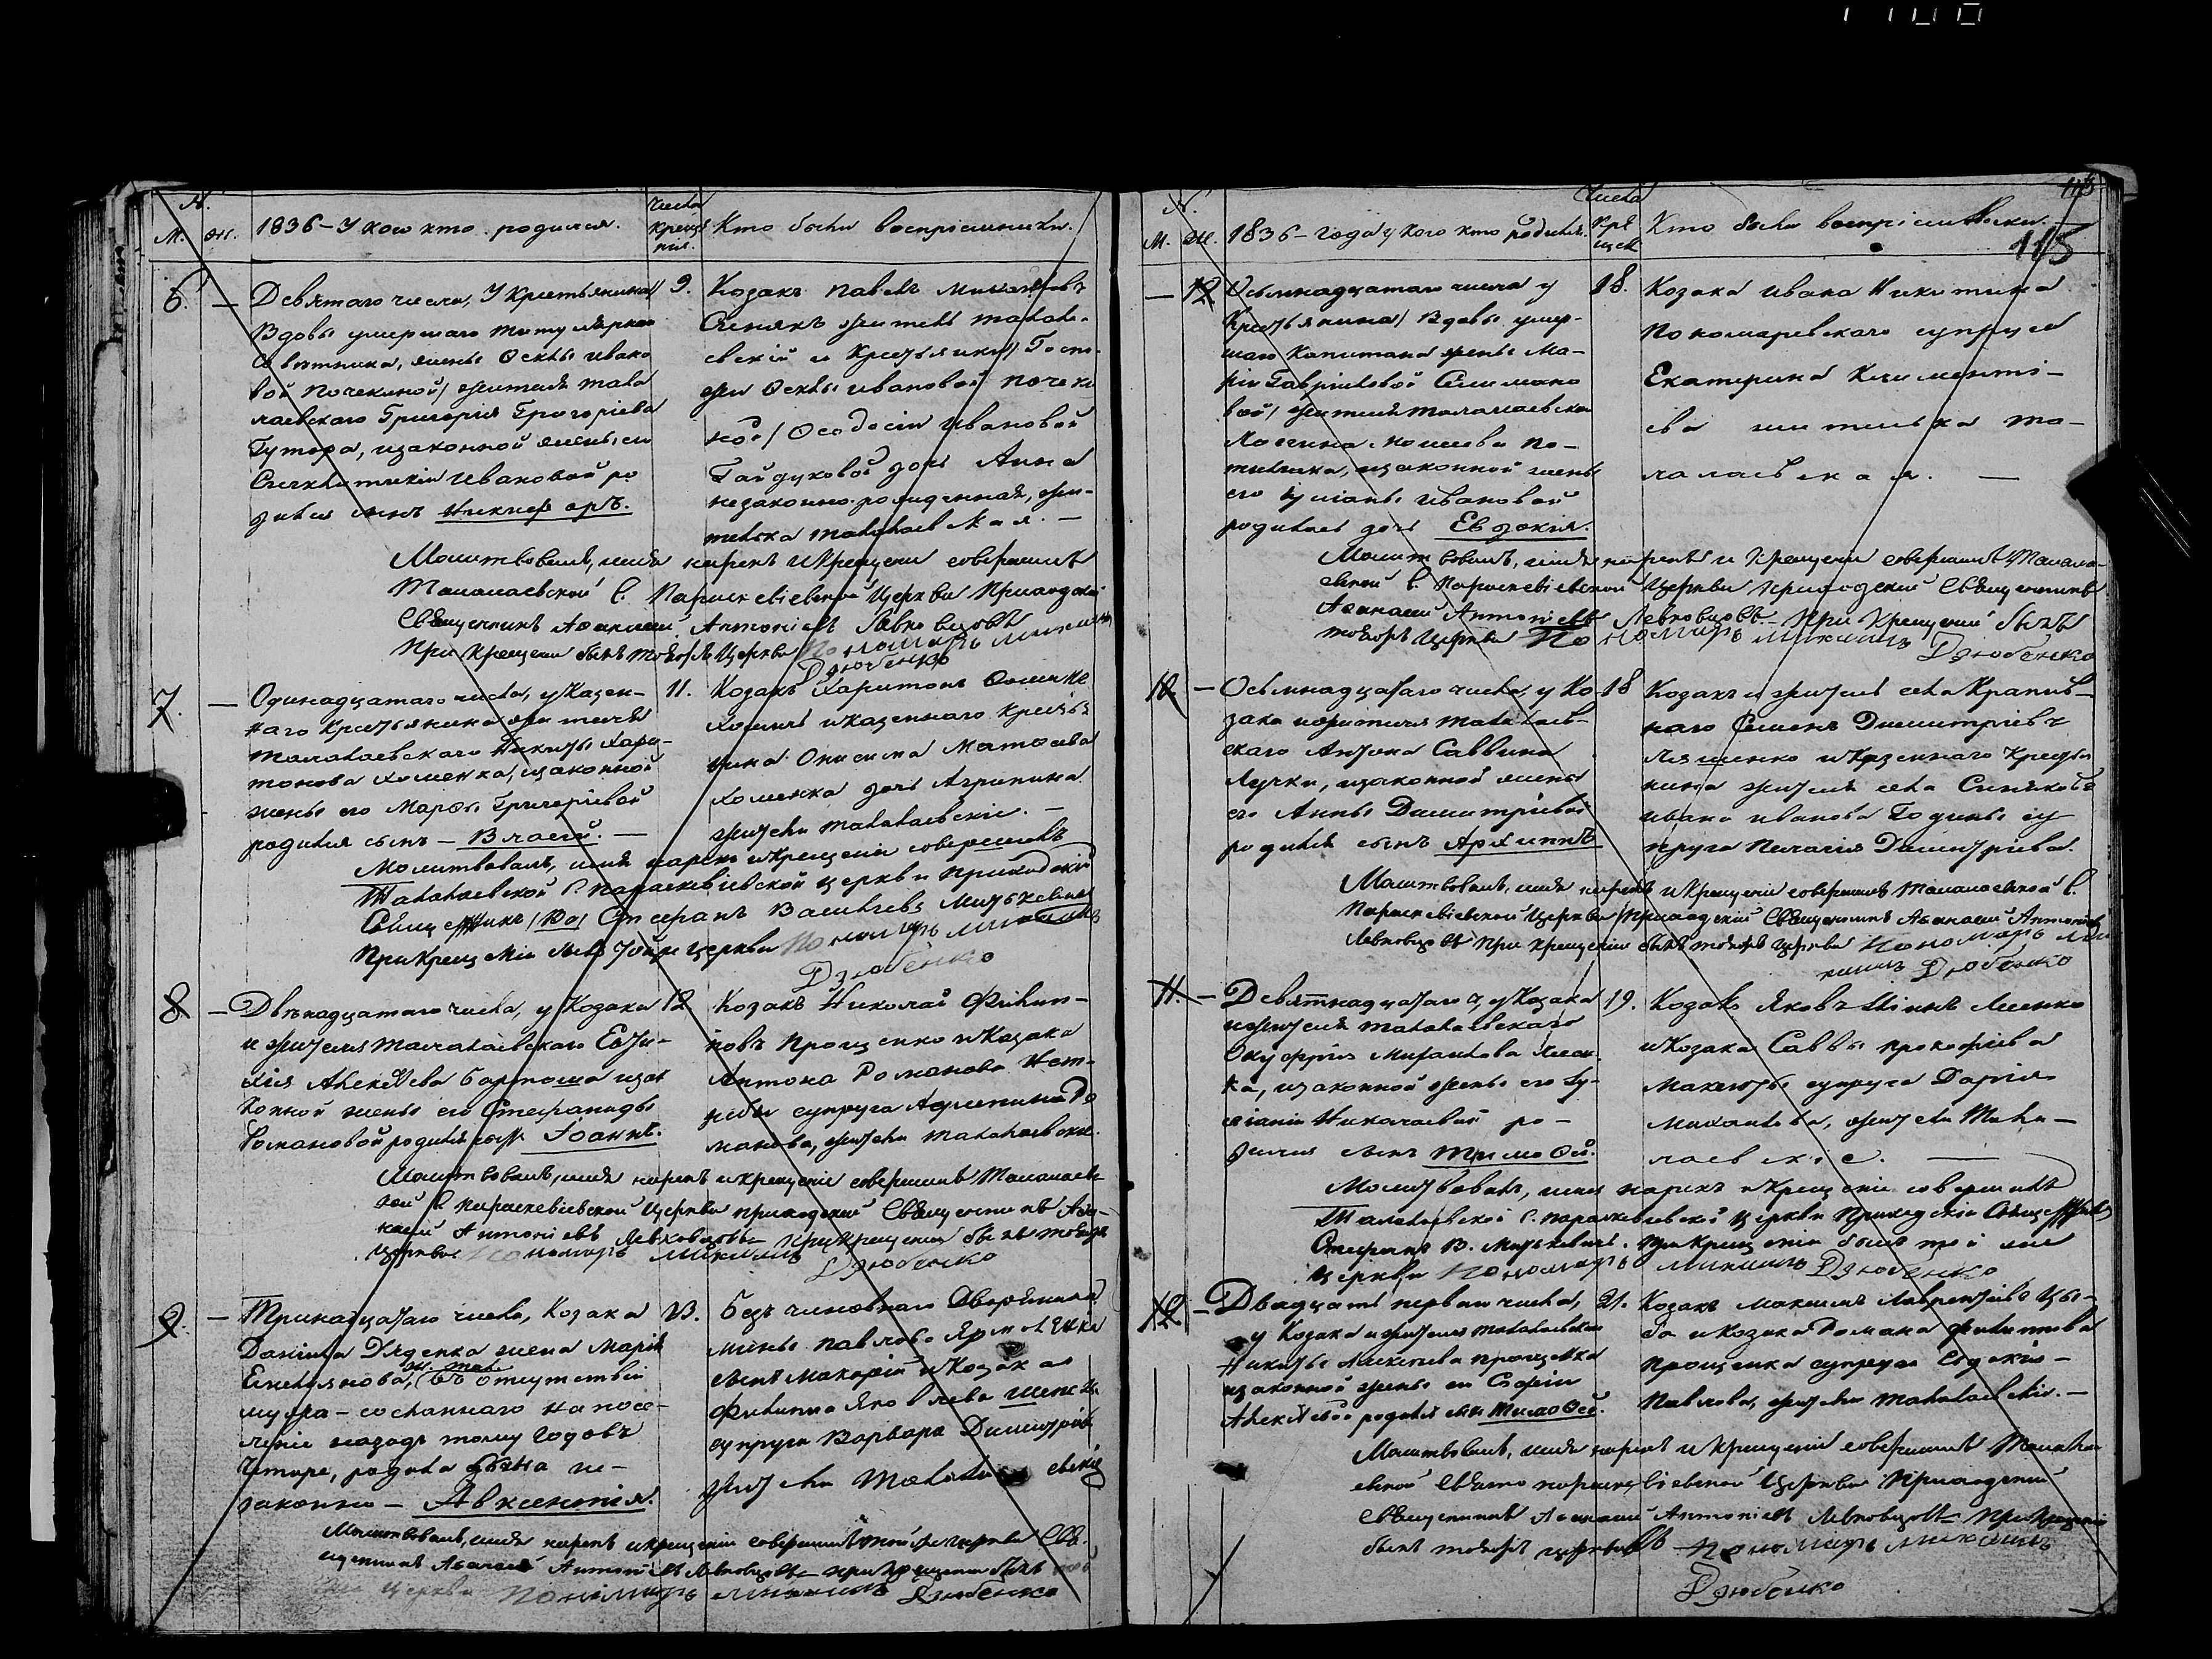 N.
М. Ж. 1836 – У кого кто родился. Числа крещения. Кто были восприемники.
6. – Девятаго числа, У крестьянина / 9. Козакъ Павелъ
Вдовы умершаго титулярнаго
Советника, жены Феклы Ивано
вой Почекиной / жителя тала
лаевскаго Григорія Григоріева
Гутора, изаконной жены его
Ивановой ро
дился сынъ Никифоръ.
житель талала-
евскій и крестьянки / Госпо-
жи Феклы Ивановой Почеки
ной / Феодосіи Ивановой
Гайдуковой дочь Анна
незаконно-рожденная, жи-
телька талалаевская. –
Молитвовалъ, имя нарекъ и крещеніе совершилъ
Талалаевской С. Параскевіевской Церкви Приходскій
Священникъ Афанасій Антоніевъ Левковцовъ
При крещеніи былъ тойже Церкви Пономарь
Дзюбенко
7. – Одинадцатаго числа, у Казен- 11.
наго Крестьянина жителя
Талалаевскаго Никиты Хари-
тонова Хоменка, изаконной
жены его Марфы Григоріевой
родился сынъ – Власій. –
Козакъ Харитонъ
и казеннаго крестья
нина Онисима Матфеева
Хоменка дочь Агрипина
жители талалаевскіе. –
Молитвовалъ, имя нарекъ и крещеніе совершилъ
Талалаевской С. Параскевіевской церкви приходскій
Священникъ Стефанъ Васильевъ Митькевичъ
При крещеніи былъ тойже церкви Пономарь
Дзюбенко
8 – Двенадцатаго числа, у Козака 12.
и жителя Талалаевскаго Евти-
хія Алексеева Бартоша изак
конной жены его Стефаниды
Романовой родился сынъ Іоаннъ.
Козакъ Николай Филип-
повъ Прощенко и Козака
Антона Романова
супруга Агрипина Ро
манова, жители талалаевскіе.
Молитвовалъ, имя нарекъ и крещеніе совершилъ Талалаев-
ской С. Параскевіевской Церкви приходскій Священникъ Афа-
насій Антоніевъ Левковцовъ при крещеніи былъ тойже
Церкви Пономарь
Дзюбенко
9. – Тринадцатаго числа, Козака 13.
Даніила Дяденка жена Марія
Емельянова, въ отсутствіи
мужа – сосланнаго на посе-
леніе назадъ тому годовъ
четыре, родила сына не-
законно – Авксентія.
безчиновнаго Дворянина
Мины Павлова
сынъ Макарій и Козака
Филиппа Яковлева
супруга Варвара Димитріева
жители Талалаевскіе
Молитвовалъ, имя нарекъ и крещеніе совершилъ тойже церкви Свя-
щенникъ Афанасій Антоніевъ Левковцовъ при крещеніи былъ той
же церкви Пономарь Дзюбенко
115
N.
М. Ж. 1836 – года у кого кто родился. Числа крещен. Кто были восприемники.
115
– 12 Осьмнадцатаго числа у 18.
Крестьянина / Вдовы умер-
шаго Капитана жены Ма-
ріи Гавріиловой Селимано
вой / жителя талалаевска
изаконной жены
его Ивановой
родилась дочь Евдокія.
Козака Ивана Никитина
Пономаревскаго супруга
Екатерина Климентi-
ева жителька та-
лалаевская. –
Молитвовалъ, имя нарекъ и крещеніе совершилъ Талала-
евской С. Параскевіевской Церкви приходскій Священникъ
Афанасій Антоніевъ Левковцовъ – При Крещеніи былъ
тойже Церкви Пономарь
Дзюбенко
10 – Осьмнадцатаго числа, у Ко- 18
зака и жителя талалаев-
скаго Антона Саввина
Лучки, изаконной жены
его Анны Димитріевой
родился сынъ Архиппъ
Козакъ и житель села Крапив-
наго Семенъ Димитріевъ
Ляшенко и казеннаго крестья
нина жителя села
Ивана Иванова Годины су
пруга Пелагія Димитріева.
Молитвовалъ, имя нарекъ и крещеніе совершилъ Талалаевской С.
Параскевіевской Церкви приходскій Священникъ Афанасій Антоніевъ
Левковцовъ при крещеніи былъ тойже церкви Пономарь
Дзюбенко
11. – Девятнадцатаго ч, у Козака 19.
и жителя талалаевскаго
Онуфрія Михайлова
изаконной жены его
Николаевой ро-
дился сынъ Тимофей.
Козакъ Яковъ
и Козака Саввы Прокофіева
супруга Дарія
Михайлова, жители Тала-
лаевскіе. –
Молитвовалъ, имя нарекъ и крещеніе совершилъ
Талалаевской С. Параскевіевской церкви Приходскій Священникъ
Стефанъ В. Митькевичъ. При крещеніи былъ той же
церкви Пономарь Дзюбенко
12 – Двадцать перваго числа, 21.
у Козака и жителя талалаевскаго
Никиты Прощенка
изаконной жены его Софіи
Алексеевой родился сынъ Тимофей.
Козакъ Максимъ Лаврентіевъ Цы-
ба и Козака Романа Филиппова
Прощенка супруга Евдокія
Павлова, жители талалаевскіе. –
Молитвовалъ, имя нарекъ и крещеніе совершилъ Талала
евской Свято Параскевіевской Церкви Приходскій
Священникъ Афанасій Антоніевъ Левковцовъ – При крещеніи
былъ тойже церкви Пономарь
Дзюбенко